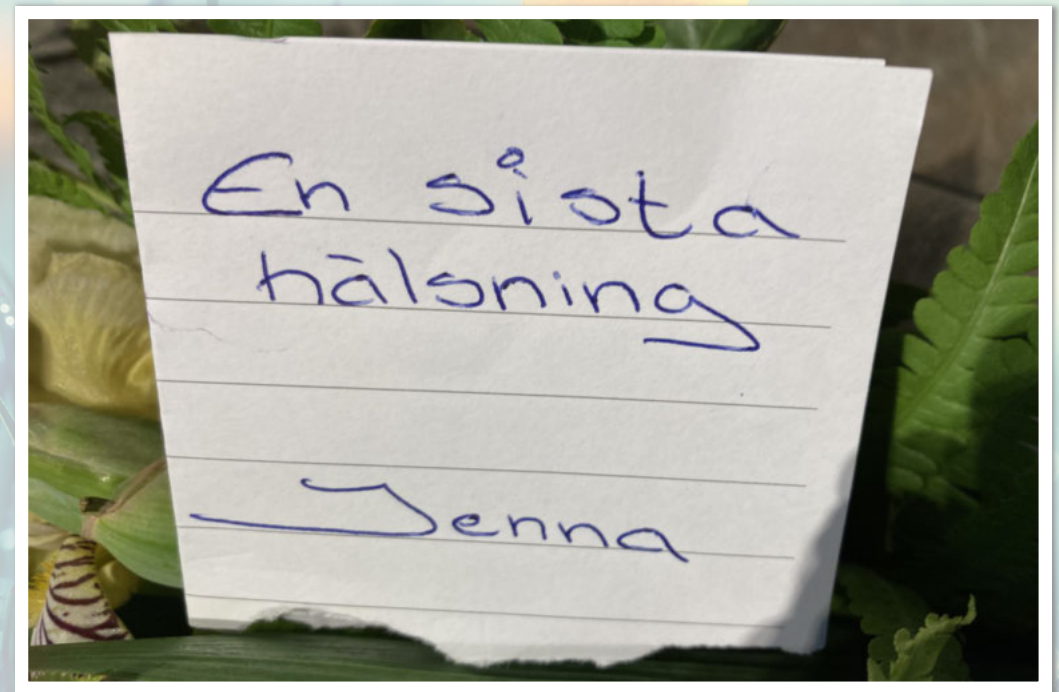 En sista
hälsning
Jenna